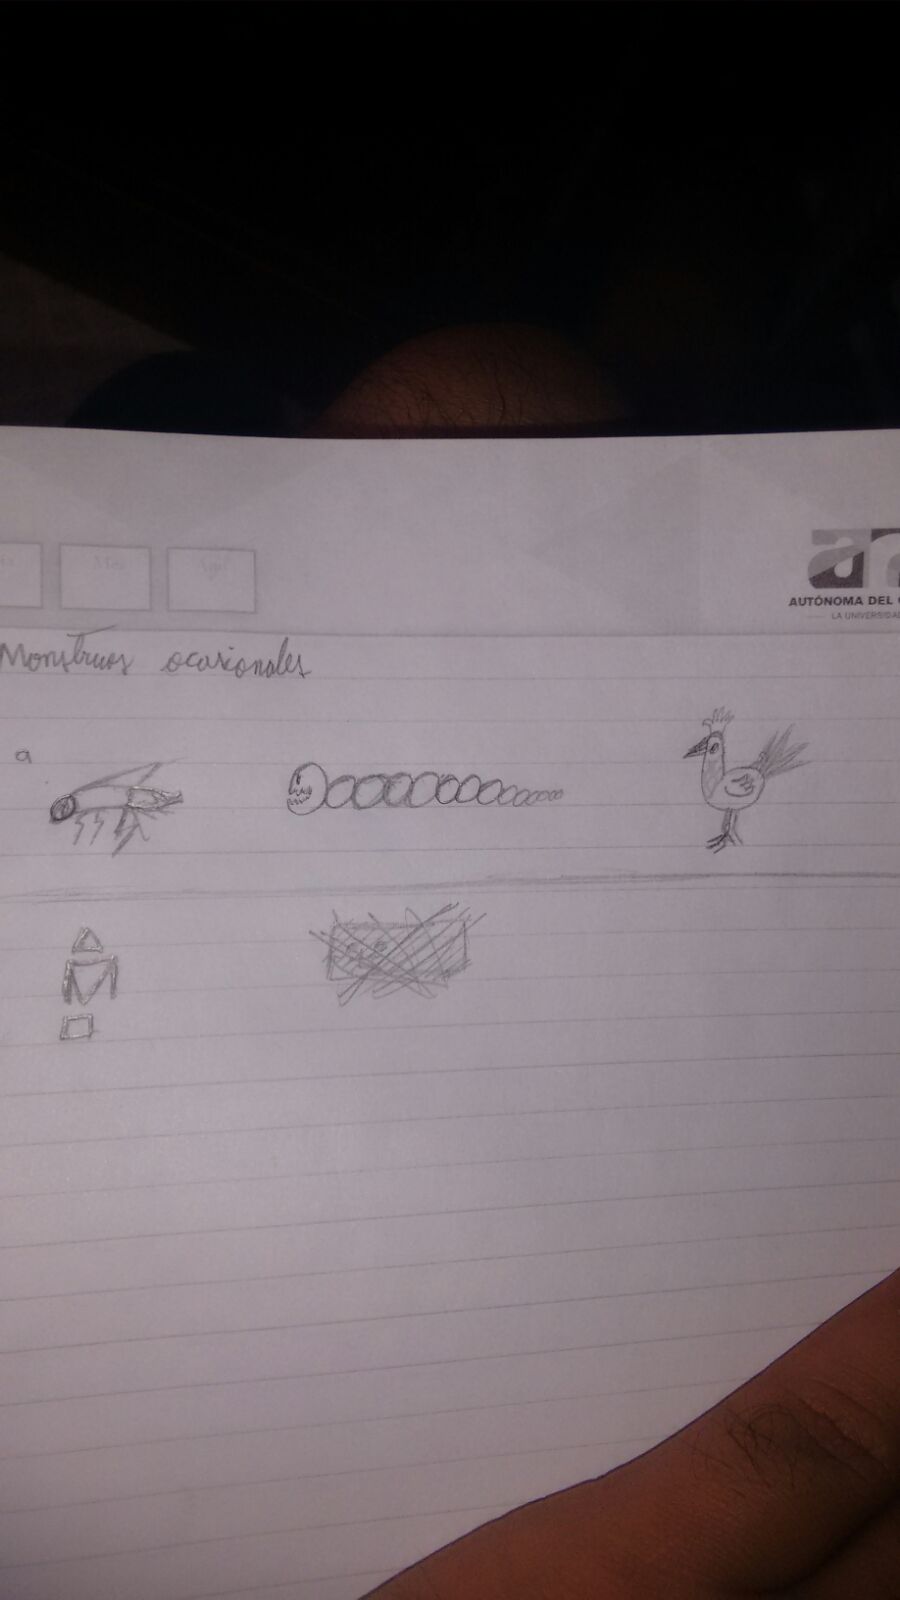 Mes
AUTÓNOMA DEL
LA UNIVERSIDA
Monstruos ocasionales
a